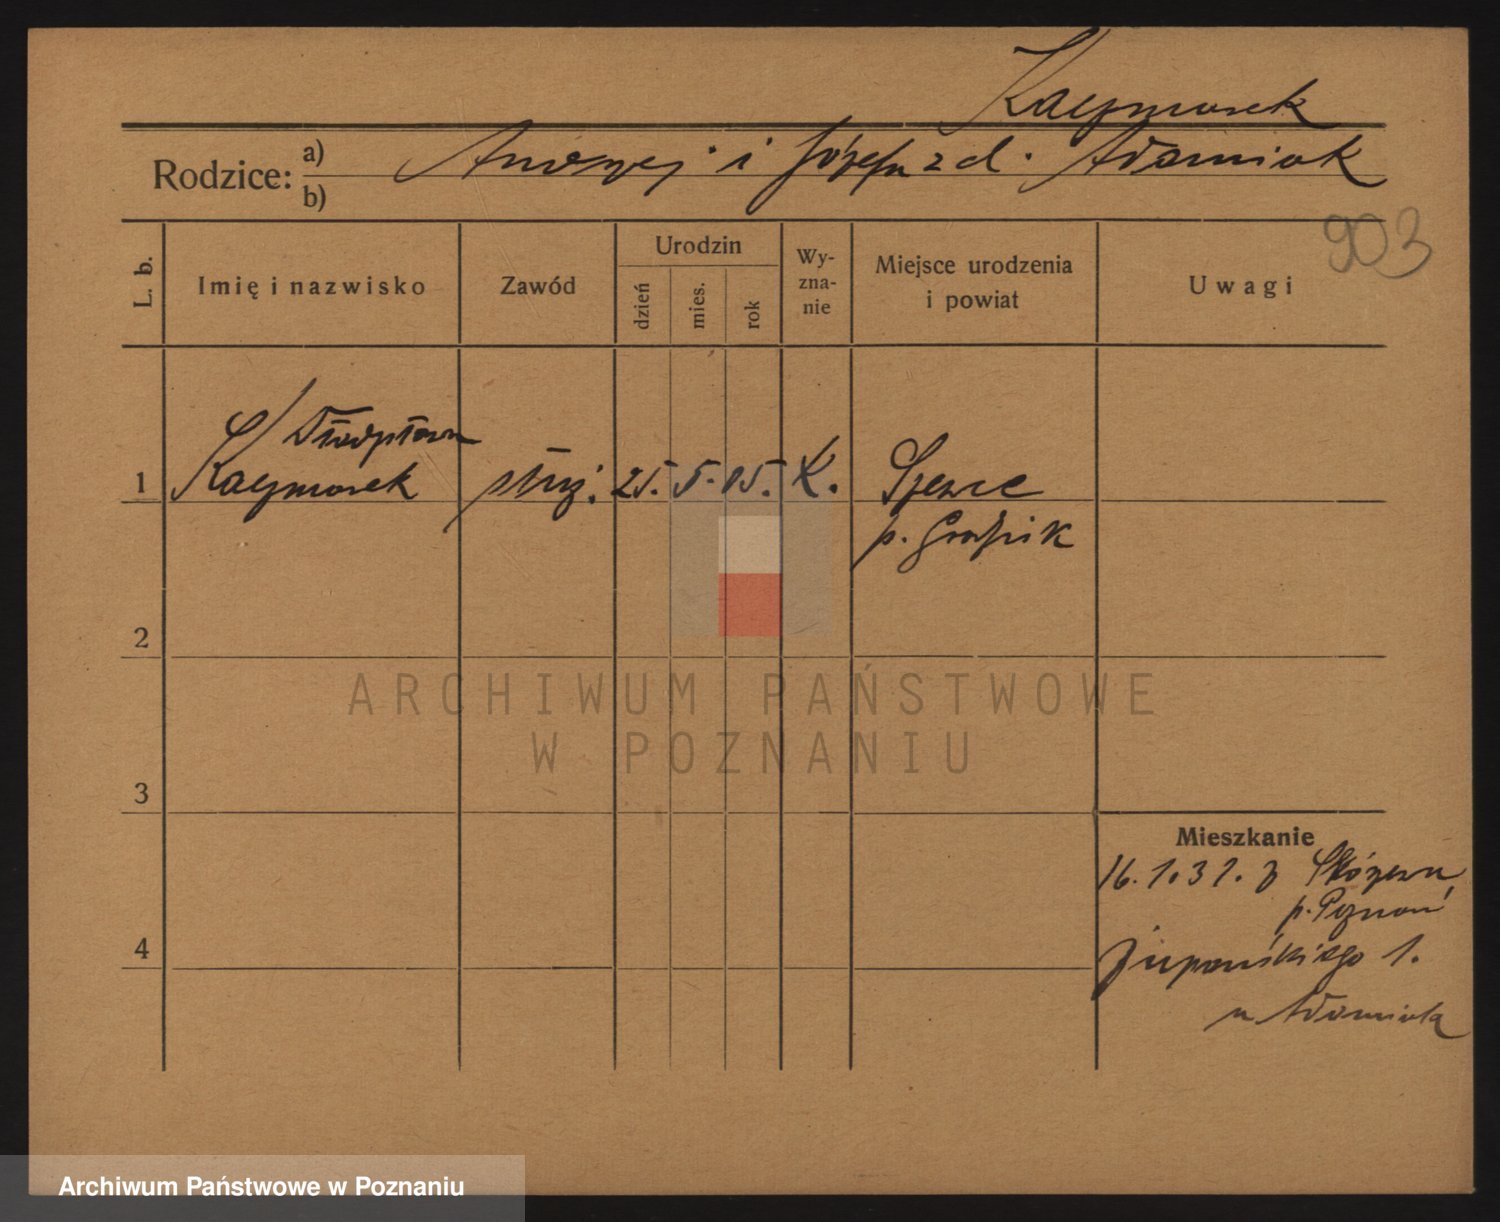 Kaczmarek
Rodzice: a) b) Andrzej i Józefa z d. Adamiak
903
L. b.
Imię i nazwisko
Zawód
Urodzin
dzień
mies.
rok
Wy-
zna-
nie
Miejsce urodzenia
i powiat
Uwagi
Władysław
1 Kaczmarek 25. 5. 15. K. Szewce
p. Grodzisk
2
ARCHIWUM PAŃSTWOWE
W POZNANIU
3
Mieszkanie
16. 1. 31. z Skórzewa
p. Poznań
4
Żupańskiego 1.
u Adamiaka
Archiwum Państwowe w Poznaniu